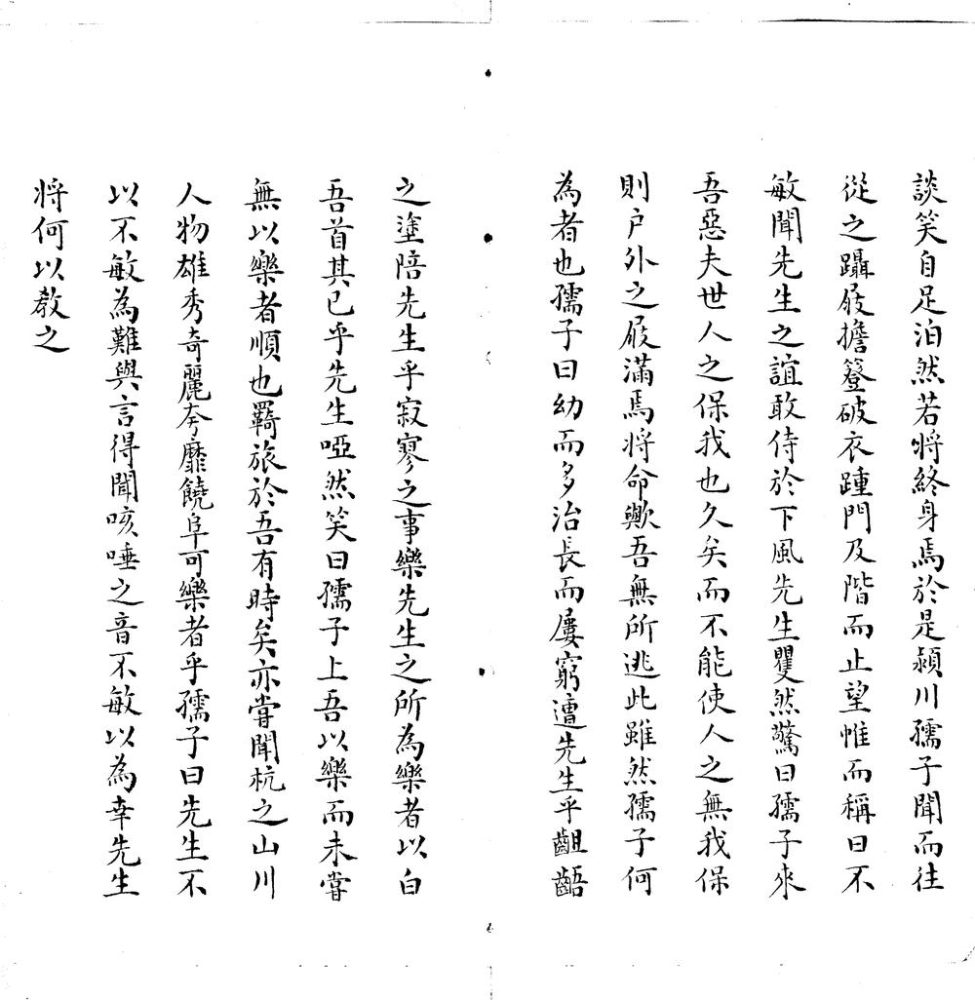 談笑自足泊然若將終身焉於是潁川孺子聞而往
從之躡屐擔簦破衣踵門及階而止望帷而稱曰不
敏聞先生之誼敢侍於下風先生瞿然驚曰孺子來
吾惡夫世人之保我也久矣而不能使人之無我保
則户外之屐滿焉將命歟吾無所逃此雖然孺子何
為者也孺子曰幼而多治長而屢窮遭先生乎齟齬
之塗陪先生乎寂寥之事樂先生之所為樂者以白
吾首其已乎先生啞然笑曰孺子上吾以樂而未嘗
無以樂者順也羇旅於吾有時矣亦嘗聞杭之山川
人物雄秀奇麗夸靡饒阜可樂者乎孺子曰先生不
以不敏為難與言得聞咳唾之音不敏以為幸先生
将何以教之